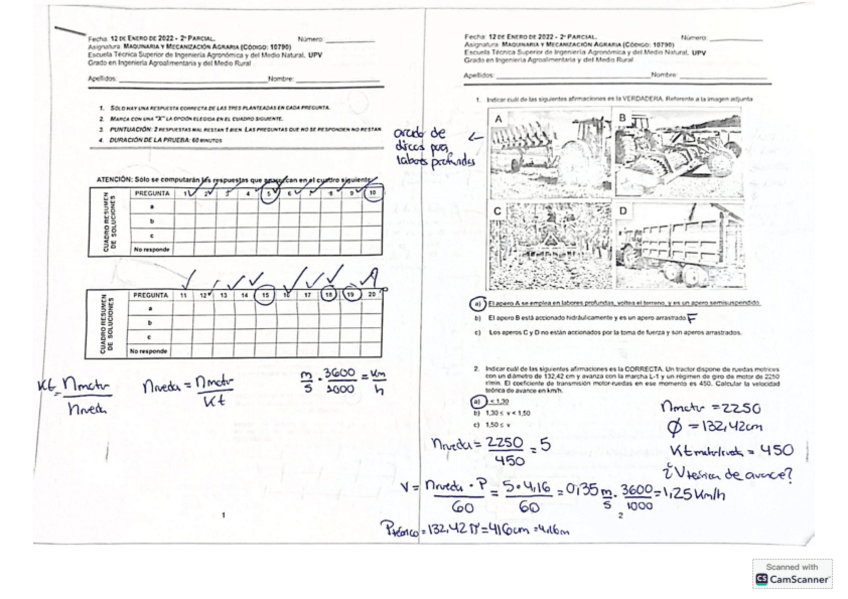 Fecha: 12 DE ENERO DE 2022 - 2º PARCIAL. Número:
Asignatura: MAQUINARIA Y MECANIZACIÓN AGRARIA (CÓDIGO: 10790)
Escuela Técnica Superior de Ingeniería Agronómica y del Medio Natural, UPV
Grado en Ingeniería Agroalimentaria y del Medio Rural
Apellidos: Nombre:
1. SÓLO HAY UNA RESPUESTA CORRECTA DE LAS TRES PLANTEADAS EN CADA PREGUNTA.
2. MARCA CON UNA "X" LA OPCIÓN ELEGIDA EN EL CUADRO SIGUIENTE.
3. PUNTUACIÓN: 2 RESPUESTAS MAL RESTAN 1 BIEN. LAS PREGUNTAS QUE NO SE RESPONDEN NO RESTAN
4. DURACIÓN DE LA PRUEBA: 60 MINUTOS
ATENCIÓN: Sólo se computarán las respuestas que aparezcan en el cuadro siguiente
CUADRO RESUMEN DE SOLUCIONES
PREGUNTA 1 2 3 4 5 6 7 8 9 10
a
b
c
No responde
CUADRO RESUMEN DE SOLUCIONES
PREGUNTA 11 12 13 14 15 16 17 18 19 20
a
b
c
No responde
Kt = nmotor / nrueda
nrueda = nmotor / Kt
m/s · 3600/1000 = Km/h
1
Fecha: 12 DE ENERO DE 2022 - 2º PARCIAL. Número:
Asignatura: MAQUINARIA Y MECANIZACIÓN AGRARIA (CÓDIGO: 10790)
Escuela Técnica Superior de Ingeniería Agronómica y del Medio Natural, UPV
Grado en Ingeniería Agroalimentaria y del Medio Rural
Apellidos: Nombre:
1. Indicar cuál de las siguientes afirmaciones es la VERDADERA. Referente a la imagen adjunta
arado de
discos para
labores profundas
A B
C D
a) El apero A se emplea en labores profundas, voltea el terreno, y es un apero semisuspendido.
b) El apero B está accionado hidráulicamente y es un apero arrastrado. F
c) Los aperos C y D no están accionados por la toma de fuerza y son aperos arrastrados.
2. Indicar cuál de las siguientes afirmaciones es la CORRECTA. Un tractor dispone de ruedas motrices
con un diámetro de 132,42 cm y avanza con la marcha L-1 y un régimen de giro de motor de 2250
r/min. El coeficiente de transmisión motor-ruedas en ese momento es 450. Calcular la velocidad
teórica de avance en km/h.
a) v < 1,30
b) 1,30 ≤ v < 1,50
c) 1,50 ≤ v
nmotor = 2250
Ø = 132,42cm
Kt motor/rueda = 450
¿V teórica de avance?
nrueda = 2250/450 = 5
V = nrueda · P / 60 = 5 · 4,16 / 60 = 0,35 m/s · 3600/1000 = 1,25 Km/h
Pteórico = 132,42 π = 416cm = 4,16m
2
Scanned with
CS CamScanner